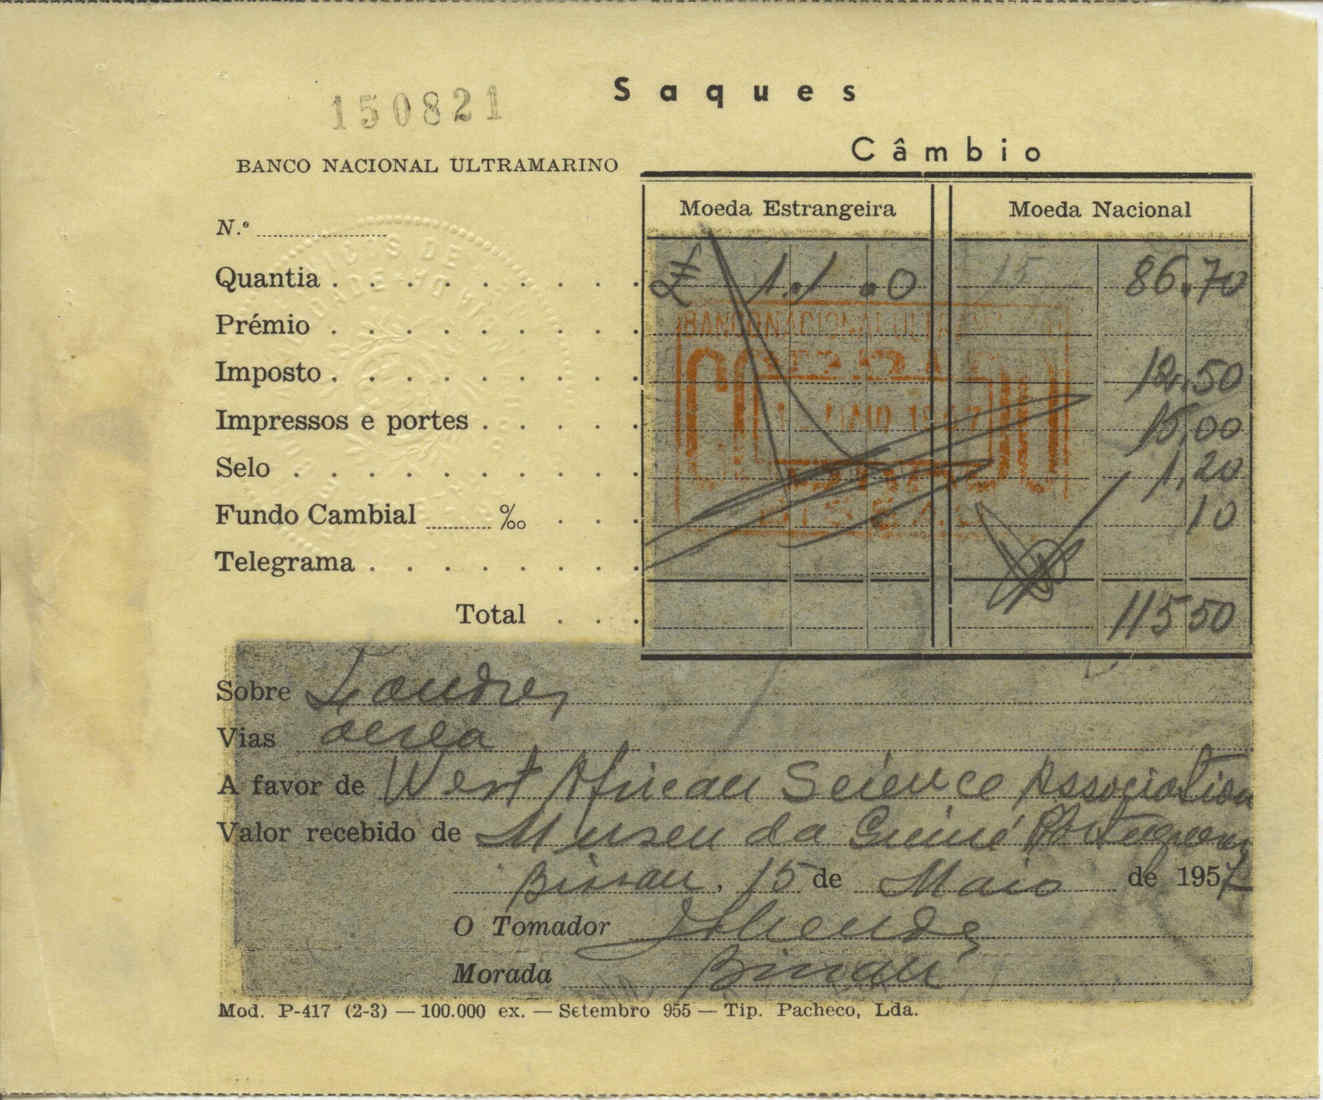 Saques
150821
Câmbio
BANCO NACIONAL ULTRAMARINO
Moeda Estrangeira Moeda Nacional
N.º
Quantia £ 1.1.0 86.70
Prémio
Imposto 12,50
Impressos e portes 15,00
Selo 1,20
Fundo Cambial ‰ 10
Telegrama
Total 115 50
BANCO NACIONAL
MAIO 1957
BISSAU
Sobre Londres
Vias aerea
A favor de West African Science Association
Valor recebido de Museu da Guiné Portuguesa
Bissau, 15 de Maio de 1957
O Tomador
Morada Bissau
Mod. P-417 (2-3) — 100.000 ex. — Setembro 955 — Tip. Pacheco, Lda.